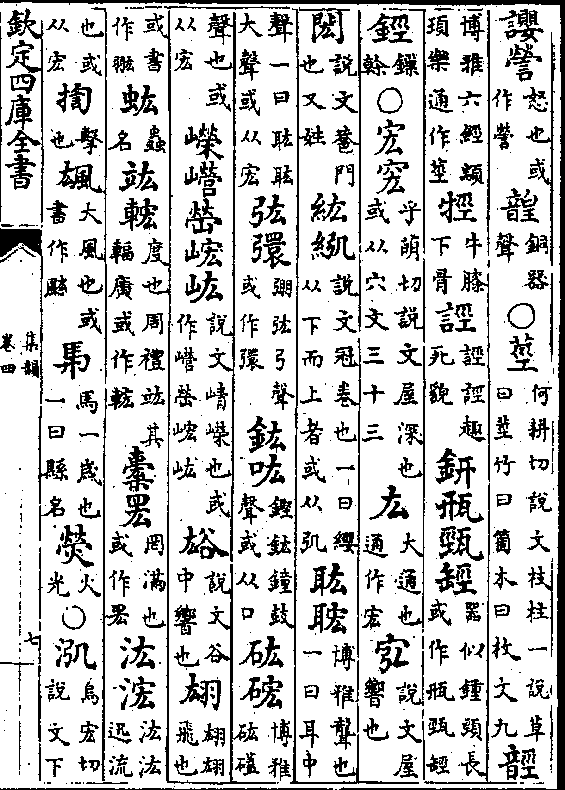 譻謍怒也或作謍韹銅器聲○莖何耕切說文枝柱一說草曰莖竹曰箇木曰枚文九䪫
博雅六經顓頊樂通作莖牼牛膝下骨誙誙誙趣死貌鈃瓶器似鍾頭長或作瓶
鋞○宏乎萌切說文屋深也或从穴文三十三厷大通也通作宏說文屋響也
閎說文巷門也又姓紘紭說文冠卷也一曰纓从下而上者或从弘耾博雅聾也一曰耳中
聲一曰耾耾大聲或从宏弦彋弸弦弓聲或作彋鈜吰鏗鈜鐘鼓聲或从口硡博雅磕
聲也或从宏嶸㠕嵤峵說文崝嶸也或作㠕嵤峵谹說文谷中響也翃翃翃飛也
或書作翝蟲名竑度也周禮竑其輻廣或作罔滿也或作汯浤汯汯迅流
也或从宏擊也大風也或書作馬一歲也一曰縣名熒火光○泓烏宏切說文下
欽定四庫全書
集韻
卷四
七